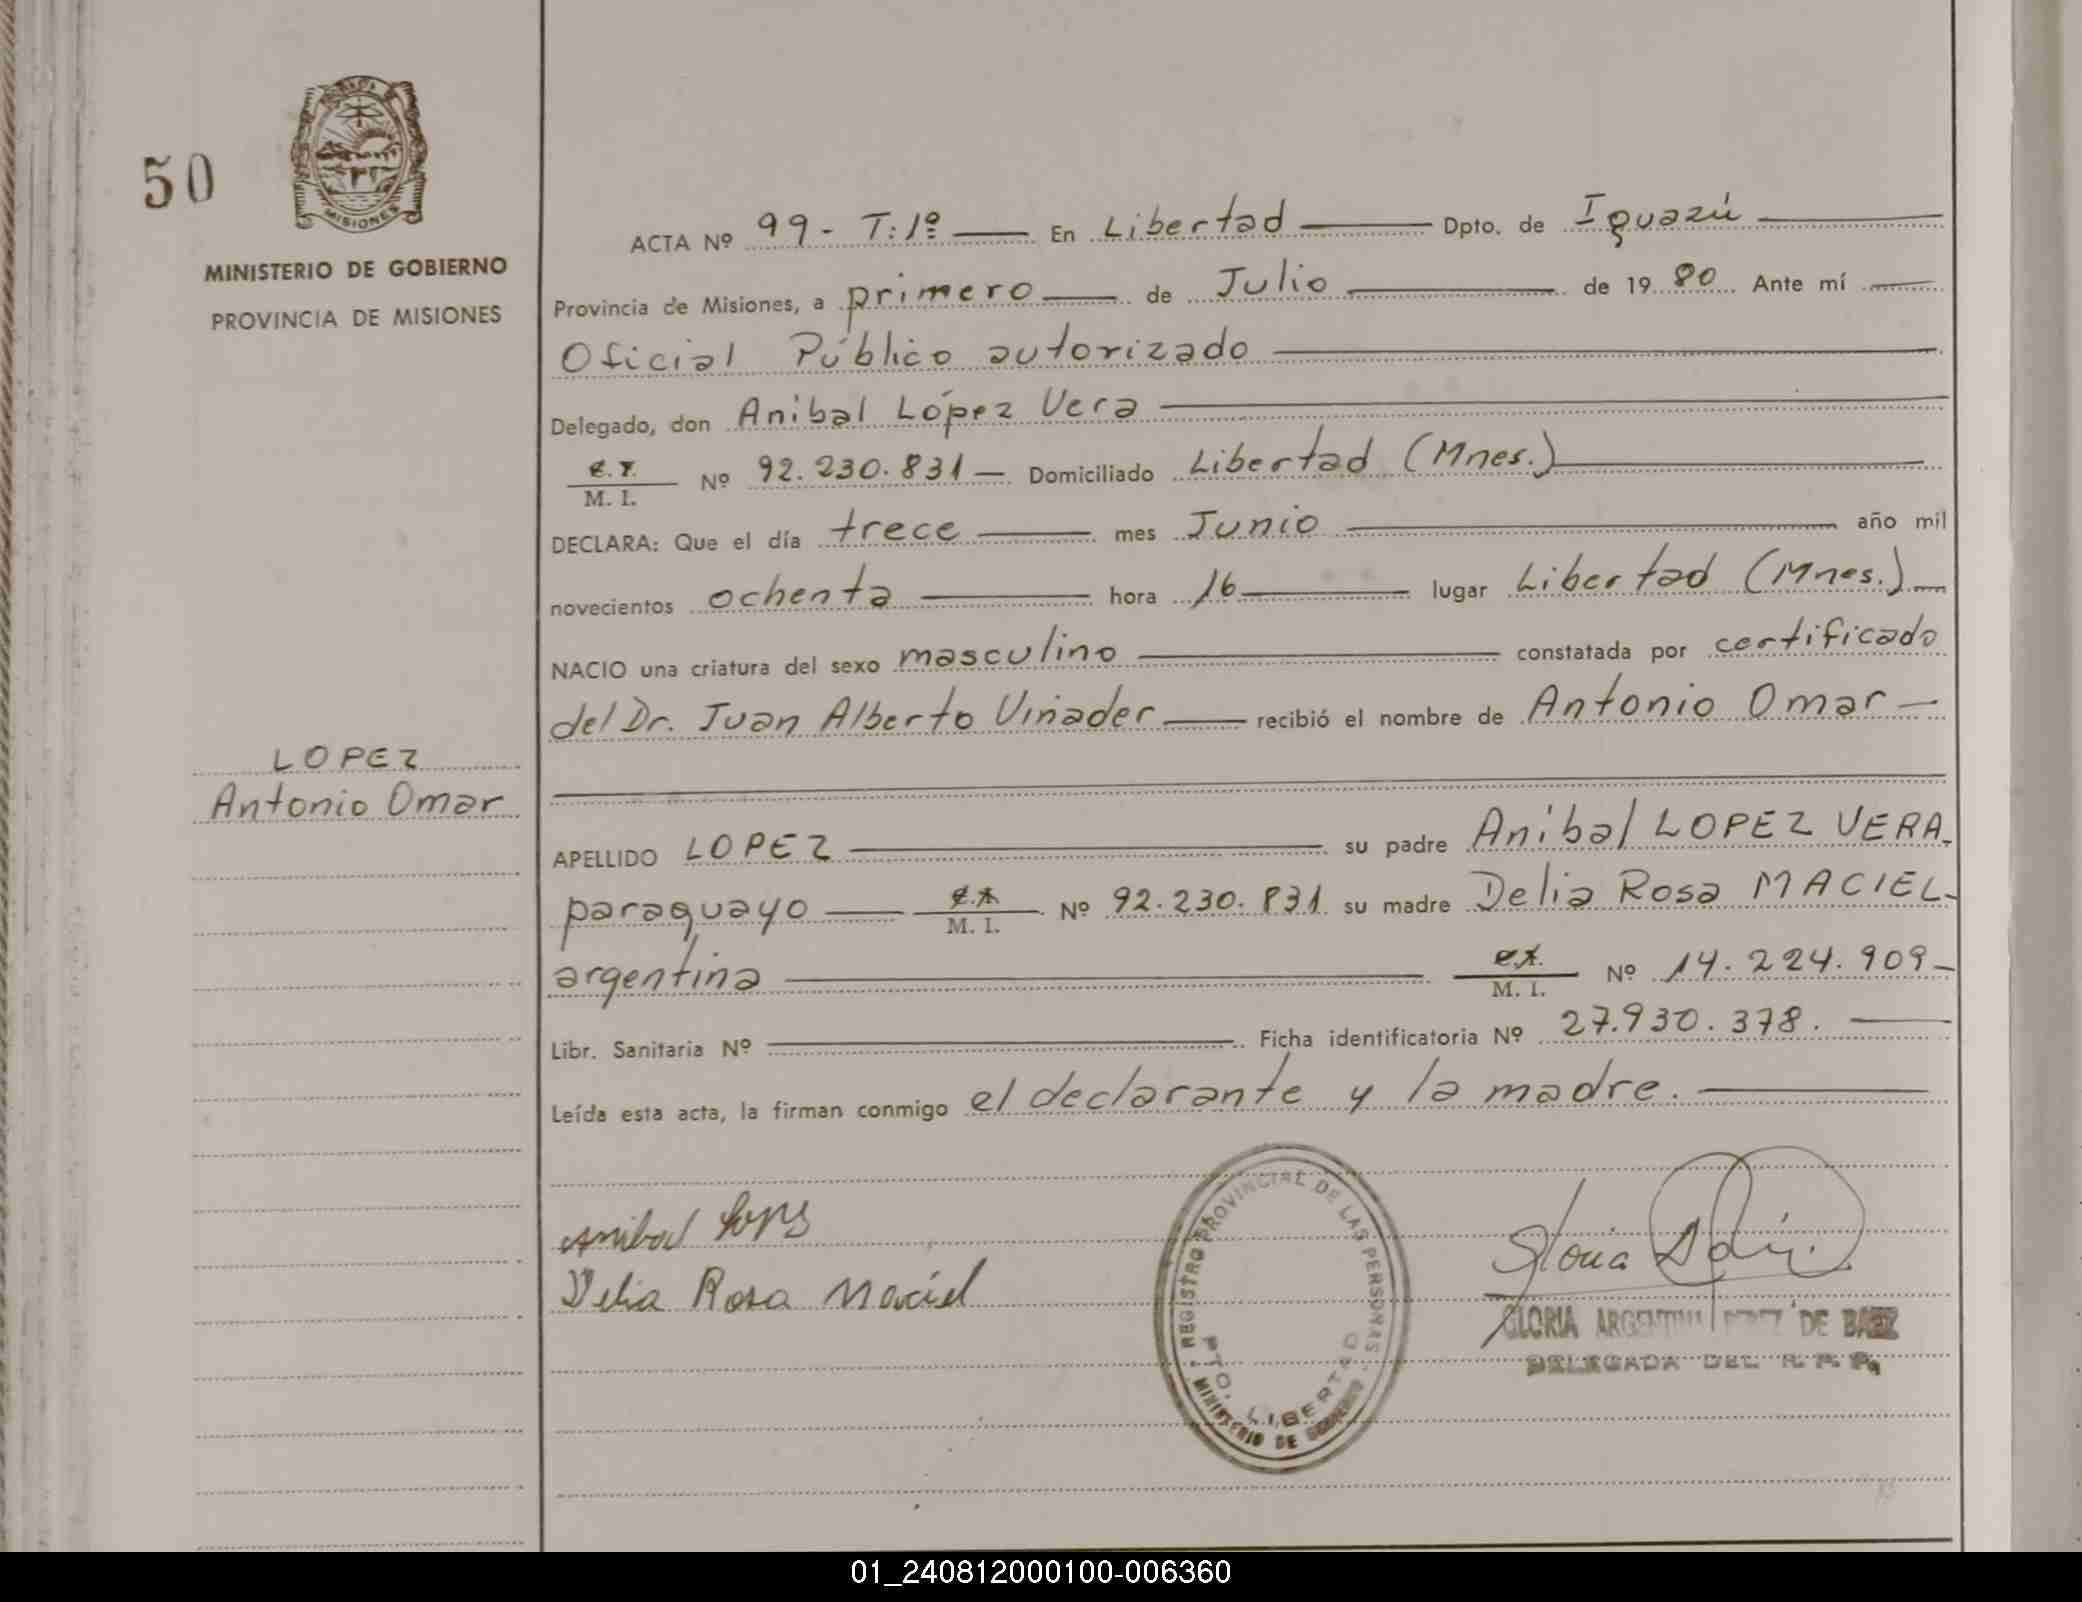 50
MISIONES
MINISTERIO DE GOBIERNO
PROVINCIA DE MISIONES
LOPEZ
Antonio Omar
ACTA Nº 99- T: 1º En Libertad Dpto. de Iguazú
Provincia de Misiones, a primero de Julio de 1980 Ante mí
Oficial Público autorizado
Delegado, don Anibal López Vera
M. I. Nº 92.230.831 Domiciliado Libertad (Mnes.)
DECLARA: Que el día trece mes Junio año mil
novecientos ochenta hora 16 lugar Libertad (Mnes.)
NACIO una criatura del sexo masculino constatada por certificado
del Dr. Juan Alberto Viñader recibió el nombre de Antonio Omar
APELLIDO LOPEZ su padre Anibal LOPEZ VERA.
paraguayo M. I. Nº 92.230.831 su madre Delia Rosa MACIEL-
argentina M. I. Nº 14.224.909-
Libr. Sanitaria Nº Ficha identificatoria Nº 27.930.378.
Leída esta acta, la firman conmigo el declarante y la madre.
Anibal Lopez
Delia Rosa Maciel
REGISTRO PROVINCIAL DE LAS PERSONAS
PTO. LIBERTAD
MINISTERIO DE GOBIERNO
Gloria
GLORIA ARGENTINA PEREZ DE BAEZ
DELEGADA DEL R. P. P.
01_240812000100-006360